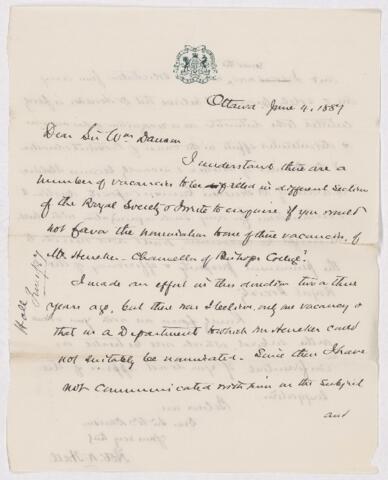 Ottawa June 4. 1887
Dear Sir Wm Dawson
I understand there are a
number of vacancies to be filled in different Sections
of the Royal Society & write to enquire if you would
not favor the nomination to one of these vacancies, of
Mr Heneker - Chancellor of Bishops College?
I made an effort in this direction two or three
years ago, but there was I believe, only one vacancy &
that in a Department to which Mr Heneker could
not suitably be nominated - Since then I have
not communicated with him on the subject
and
Hall